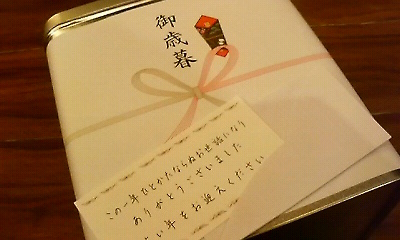 御歳暮
この一年ひとかたならぬお世話になり
ありがとうございました
よい年をお迎えください